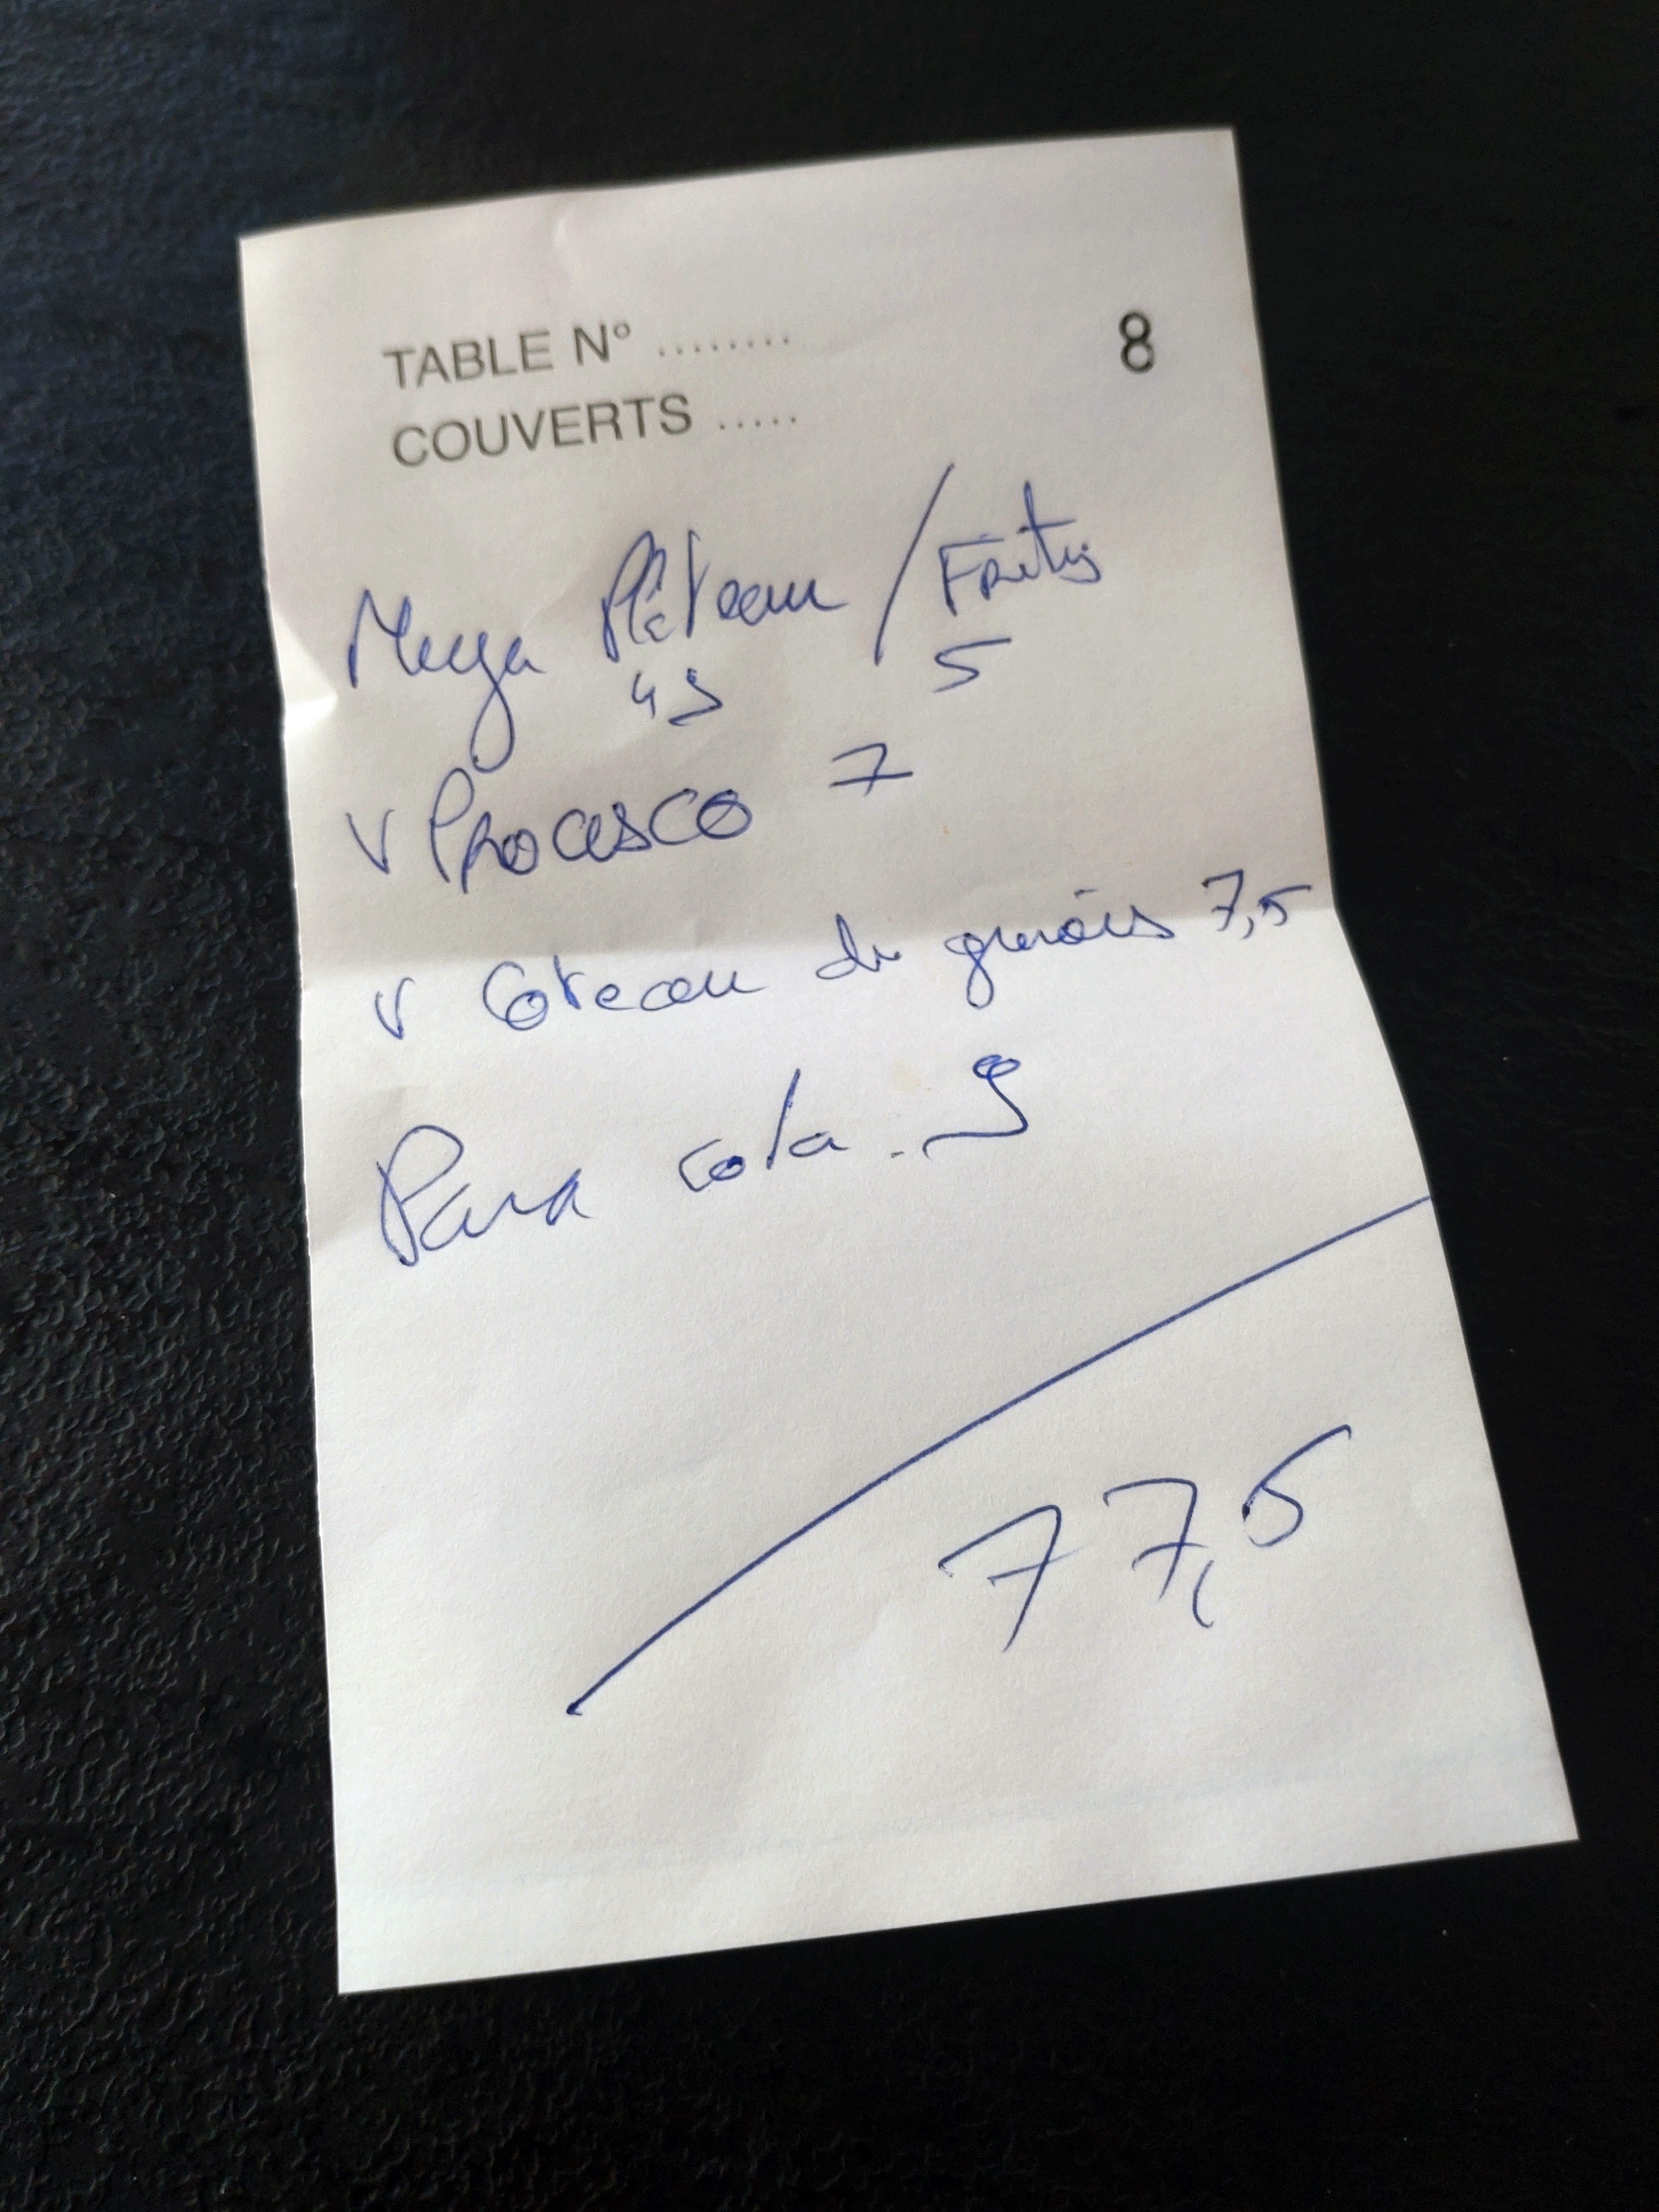 TABLE N° ........ 8
COUVERTS .....
Mega Plateau / Frites
49 5
V Procesco 7
V Coteau du gienois 7,5
Para cola . 9
77,5